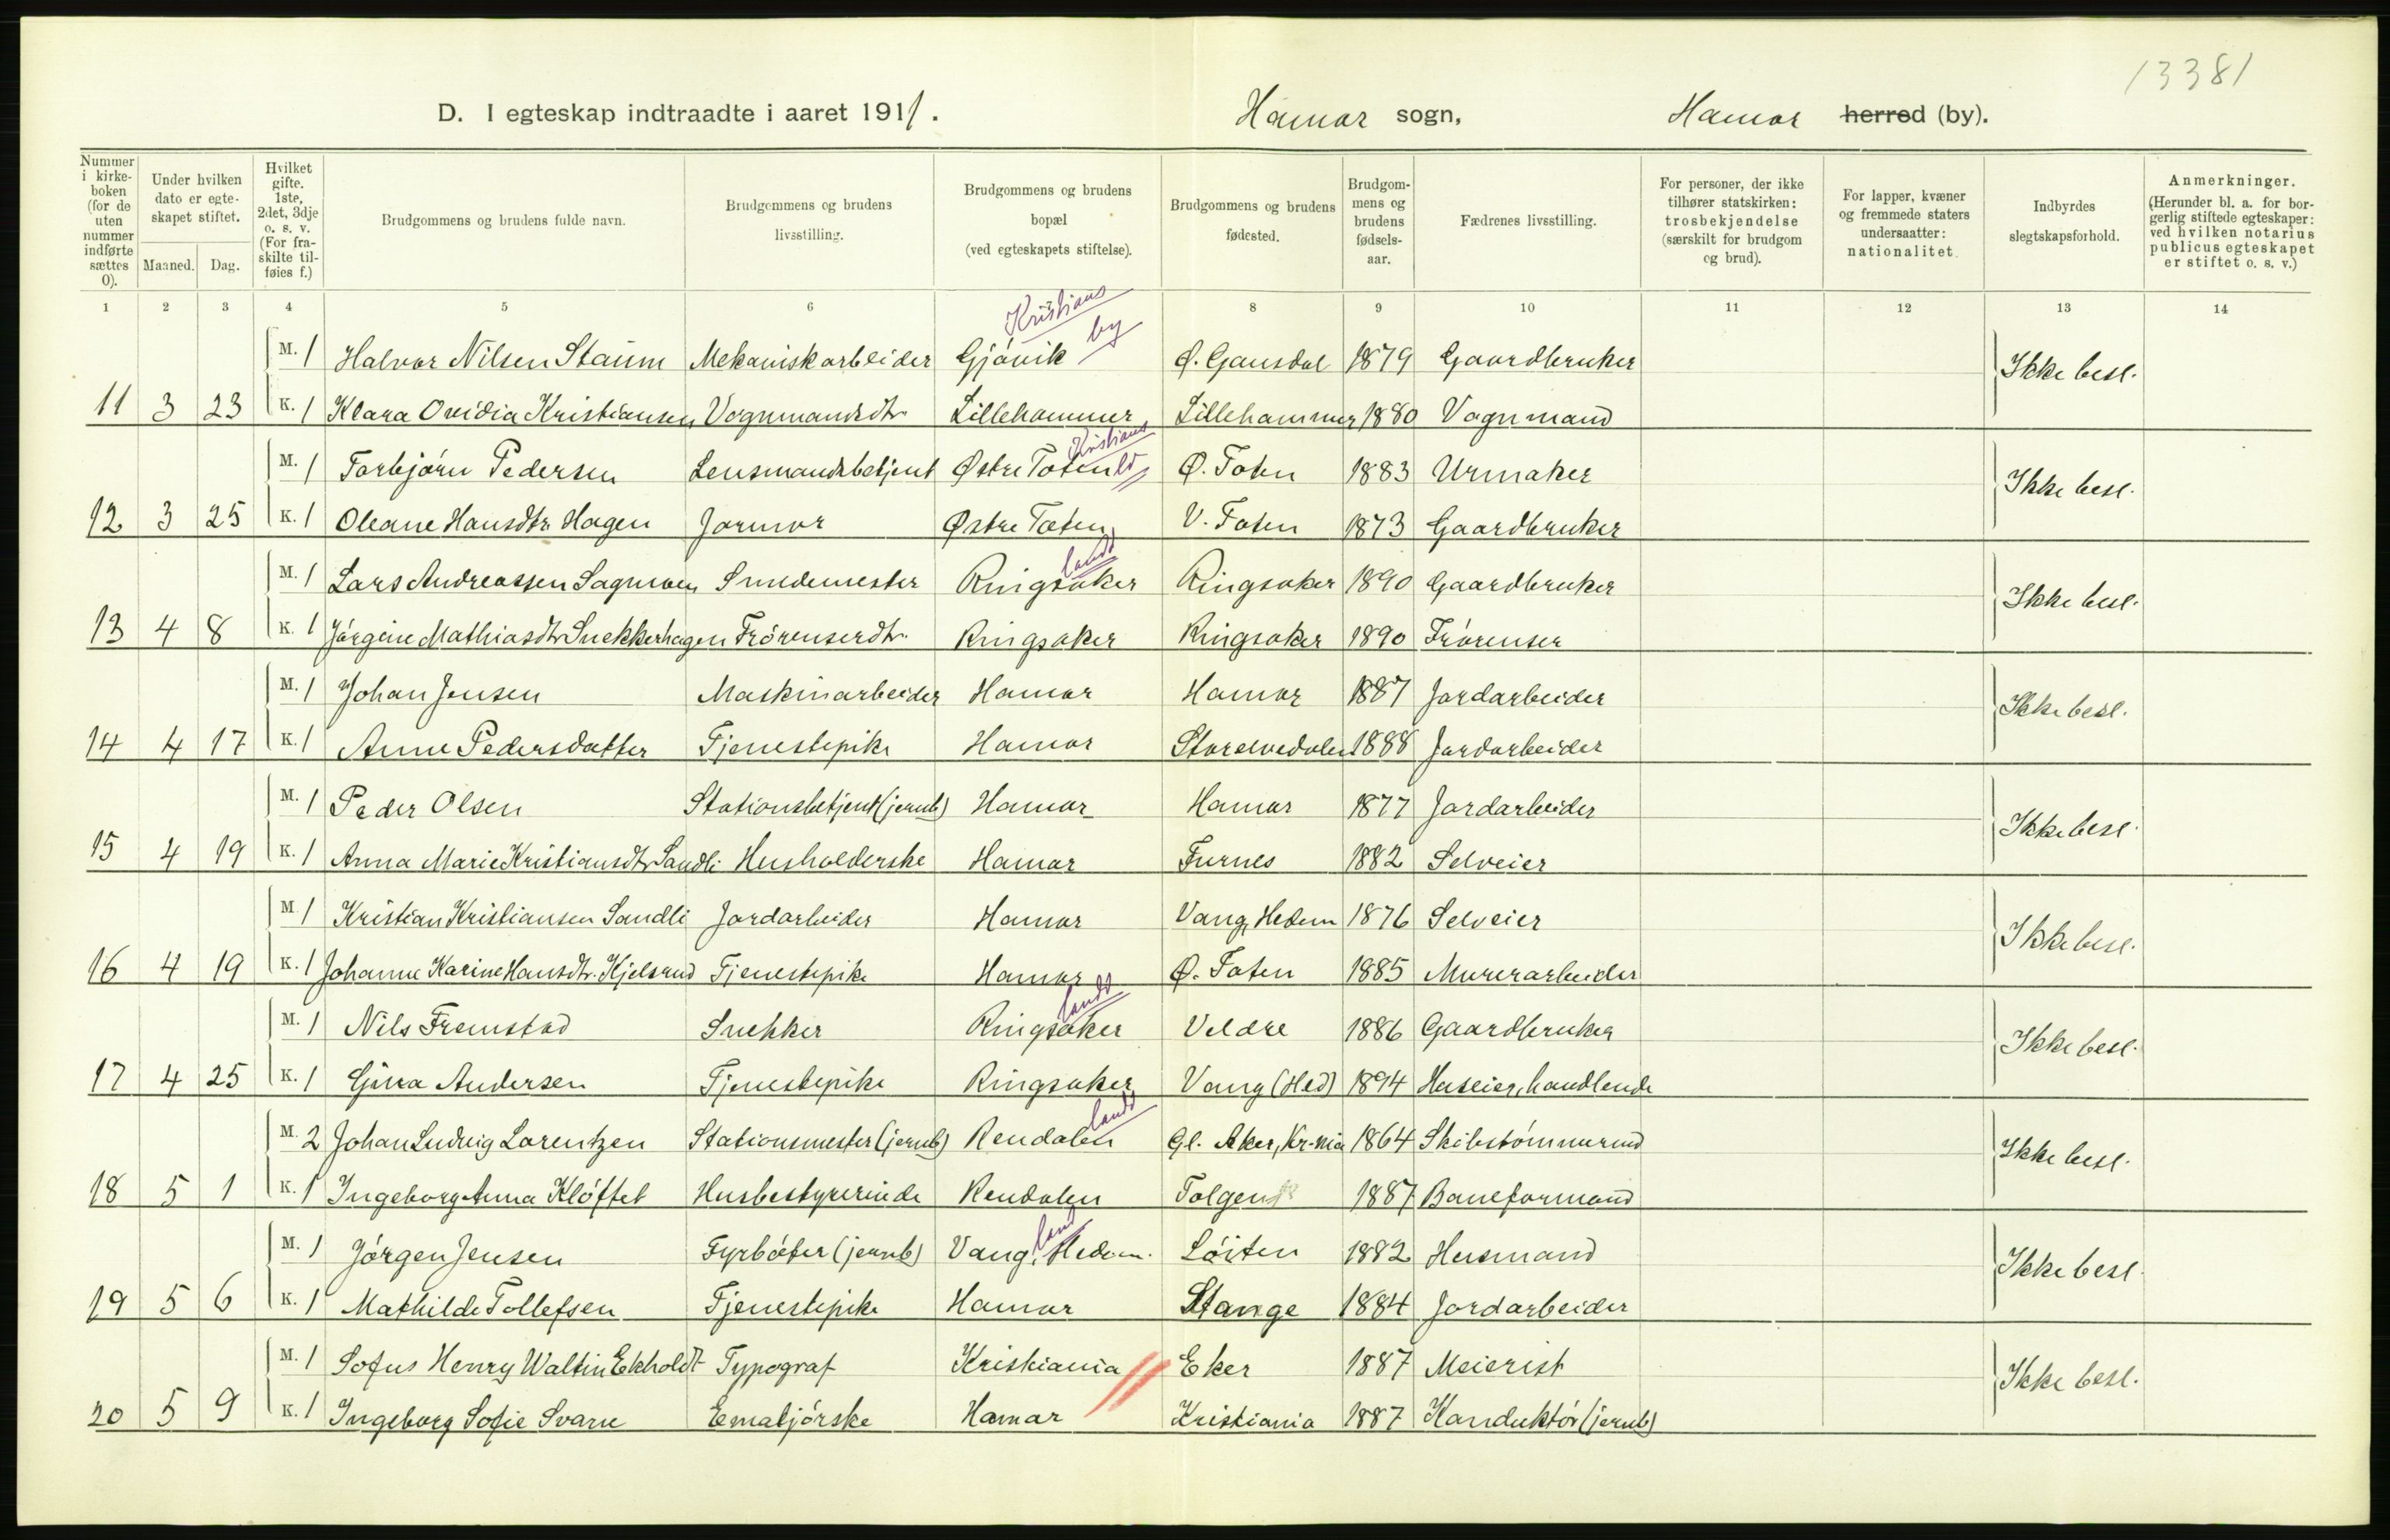 13381
D. I egteskap indtraadte i aaret 1911. Hamar sogn, Hamar herred (by).
Nummer i kirkeboken (for de uten nummer indførte sættes 0). Under hvilken dato er egteskapet stiftet. Maaned. Dag. Hvilket gifte. 1ste, 2det, 3dje o. s. v. (For fraskilte tilføies f.) Brudgommens og brudens fulde navn. Brudgommens og brudens livsstilling. Brudgommens og brudens bopæl (ved egteskapets stiftelse). Brudgommens og brudens fødested. Brudgommens og brudens fødselsaar. Fædrenes livsstilling. For personer, der ikke tilhører statskirken: trosbekjendelse (særskilt for brudgom og brud). For lapper, kvæner og fremmede staters undersaatter: nationalitet. Indbyrdes slegtskapsforhold. Anmerkninger. (Herunder bl. a. for borgerlig stiftede egteskaper: ved hvilken notarius publicus egteskapet er stiftet o. s. v.)
1 2 3 4 5 6 8 9 10 11 12 13 14
Kristians by
M. 1 Halvor Nilsen Staum Mekaniskarbeider Gjøvik Ø. Gausdal 1879 Gaardbruker Ikke besl.
11 3 23 K. 1 Klara Ovidia Kristiansen Vognmandsdtr Lillehammer Lillehammer 1880 Vognmand
Kristians
M. 1 Torbjørn Pedersen Lensmandsbetjent Østre Toten ld Ø. Toten 1883 Urmaker Ikke besl.
12 3 25 K. 1 Oleane Hansdtr. Hagen Jormor Østre Toten V. Toten 1873 Gaardbruker
landd
M. 1 Lars Andreassen Sagmoen Smedemester Ringsaker Ringsaker 1890 Gaardbruker Ikke besl.
13 4 8 K. 1 Jørgine Mathiasdtr Snekkerhagen Frørenserdtr. Ringsaker Ringsaker 1890 Frørenser
M. 1 Johan Jensen Maskinarbeider Hamar Hamar 1887 Jordarbeider Ikke besl.
14 4 17 K. 1 Anne Pedersdatter Tjenestepike Hamar Storelvedalen 1888 Jordarbeider
M. 1 Peder Olsen Stationsbetjent (jernb) Hamar Hamar 1877 Jordarbeider Ikke besl.
15 4 19 K. 1 Anna Marie Kristiansdtr Sandli Husholderske Hamar Furnes 1882 Selveier
M. 1 Kristian Kristiansen Sandli Jordarbeider Hamar Vang, Hedem 1876 Selveier Ikke besl.
16 4 19 K. 1 Johanne Karine Hansdtr. Kjelsrud Tjenestepike Hamar Ø. Toten 1885 Murerarbeider
landd
M. 1 Nils Fremstad Snekker Ringsaker Veldre 1886 Gaardbruker Ikke besl.
17 4 25 K. 1 Gina Andersen Tjenestepike Ringsaker Vang (Hed) 1894 Huseier, handlende
landd
M. 2 Johan Ludvig Lorentzen Stationsmester (jernb) Rendalen Gl. Aker, Kr-nia 1864 Skibstømmermd Ikke besl.
18 5 1 K. 1 Ingeborg Anna Kløftet Husbestyrerinde Rendalen Tolgen 1887 Baneformand
land
M. 1 Jørgen Jensen Fyrbøter (jernb) Vang, Hedem. Løiten 1882 Husmand Ikke besl.
19 5 6 K. 1 Mathilde Tollefsen Tjenestepike Hamar Stange 1884 Jordarbeider
M. 1 Sofus Henry Waltin Ekholdt Typograf Kristiania Eker 1887 Meierist Ikke besl.
20 5 9 K. 1 Ingeborg Sofie Svarre Emaljørske Hamar Kristiania 1887 Konduktør (jernb)